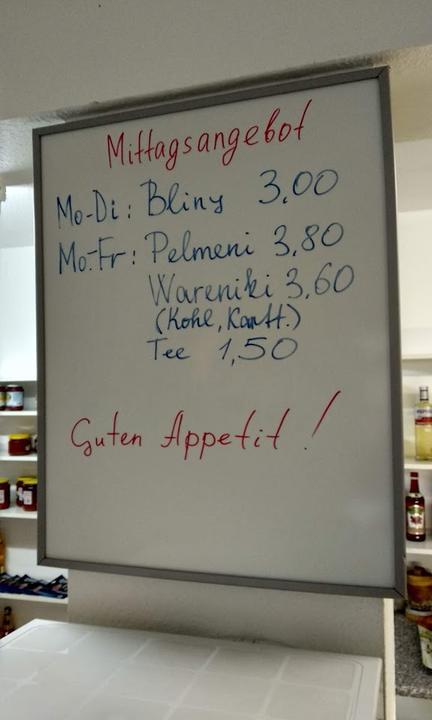 Mittagsangebot
Mo-Di: Bliny 3,00
Mo-Fr: Pelmeni 3,80
Wareniki 3,60
(Kohl, Kartt.)
Tee 1,50
Guten Appetit!